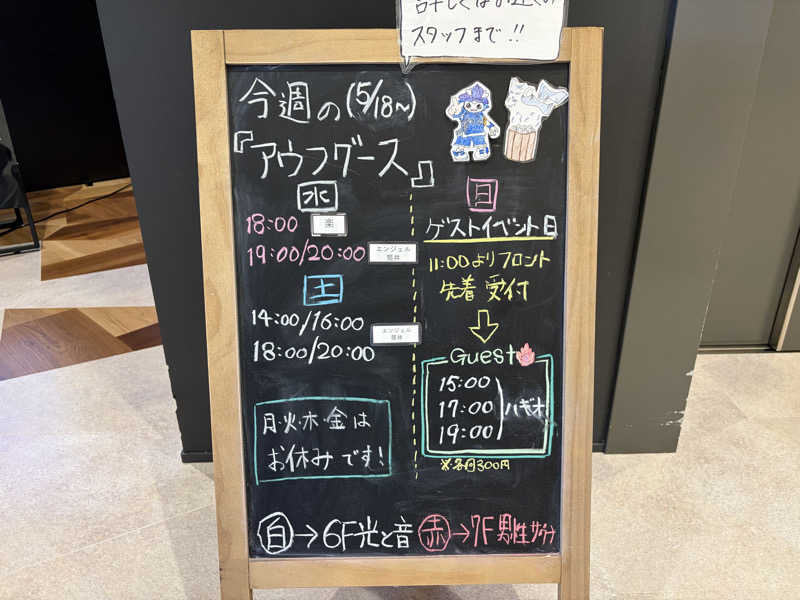 スタッフまで!!
今週の(5/18~)
『アウフグース』
水
18:00 楽
19:00/20:00 エンジェル
土
14:00/16:00 エンジェル
18:00/20:00
月・火・木・金は
お休みです!
日
ゲストイベント日
11:00よりフロント
先着受付
Guest
15:00
17:00 ハギオ
19:00
※各回300円
白→6F光と音 赤→7F男性サウナ